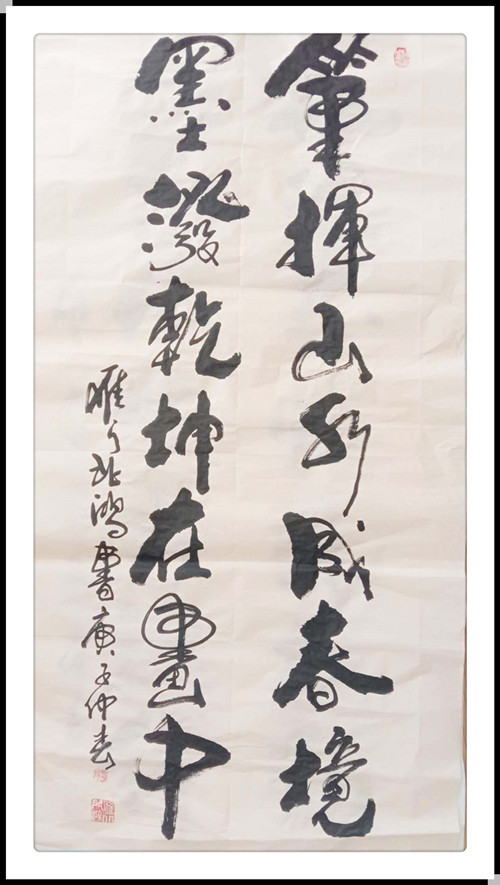 筆揮山水成春境
墨潑乾坤在畫中
鴻書庚子仲春